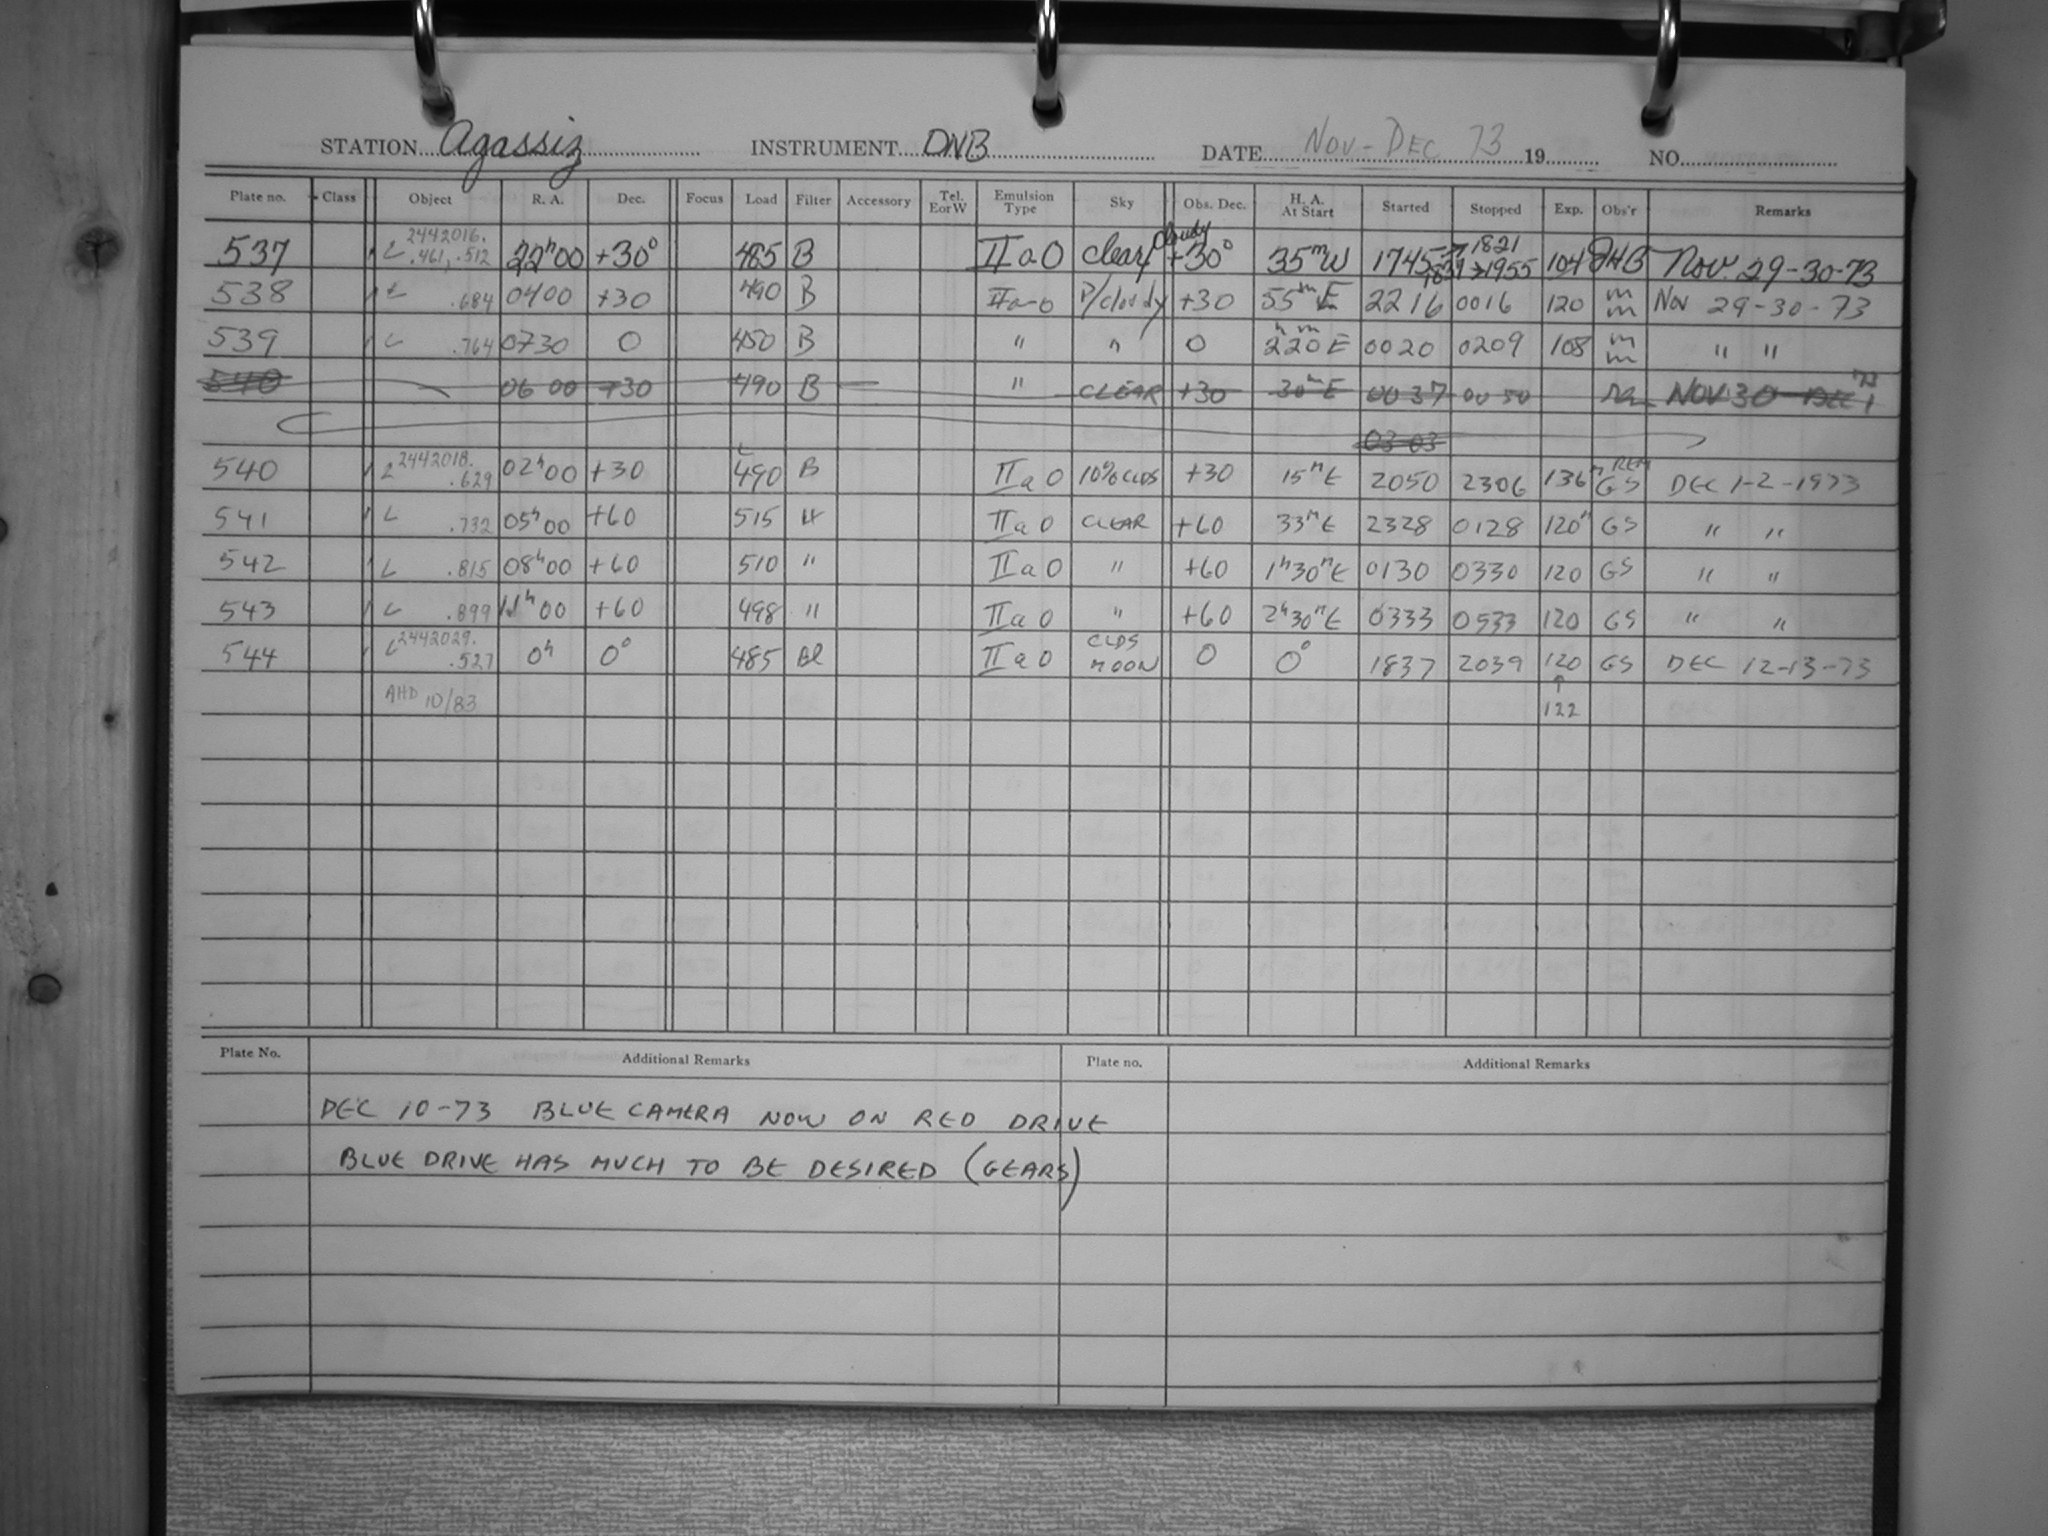 STATION Agassiz INSTRUMENT DNB DATE Nov-Dec 73 19 NO.
Plate no. Class Object R. A. Dec. Focus Load Filter Accessory Tel. EorW Emulsion Type Sky Obs. Dec. H. A. At Start Started Stopped Exp. Obs'r Remarks
537 L 2442016. .461, .512 22h00 +30° 485 B IIaO clear cloudy +30° 35m W 1745 → 1821 1839 → 1955 104 JHB Nov. 29-30-73
538 L .684 0400 +30 490 B IIa-o P/cloudy +30 55m E 2216 0016 120 mm Nov 29-30-73
539 L .764 0730 0 450 B " " 0 2h20m E 0020 0209 108 mm " "
540 06 00 +30 490 B " CLEAR +30 30m E 0037 0050 NOV 30 DEC 1 '73
03 03
540 L 2442018. .629 02h00 +30 490 B IIaO 10% CLDS +30 15m E 2050 2306 136m REM GS DEC 1-2-1973
541 L .732 05h00 +60 515 IIaO CLEAR +60 33m E 2328 0128 120m GS " "
542 L .815 08h00 +60 510 " IIaO " +60 1h30m E 0130 0330 120 GS " "
543 L .899 11h00 +60 498 " IIaO " +60 2h30m E 0333 0533 120 GS " "
544 L 2442029. .527 0h 0° 485 Bl IIaO CLDS MOON 0 0° 1837 2039 120 GS DEC 12-13-73
AHD 10/83 ↑ 122
Plate No. Additional Remarks Plate no. Additional Remarks
DEC 10-73 BLUE CAMERA NOW ON RED DRIVE
BLUE DRIVE HAS MUCH TO BE DESIRED (GEARS)